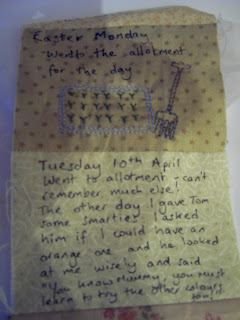 Easter Monday
Went to the allotment
for the day
Tuesday 10th April
Went to allotment - can't
remember much else!
The other day I gave Tom
some smarties. I asked
him if I could have an
orange one and he looked
at me wisely and said
"You know Mummy, you must
learn to try the other colours
too"